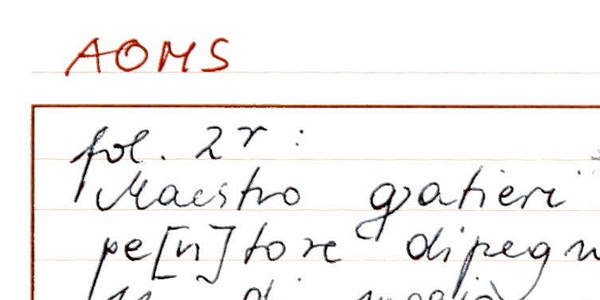 AOMS
fol. 2r:
Maestro gratieri
pe[n]tore dipegn
di